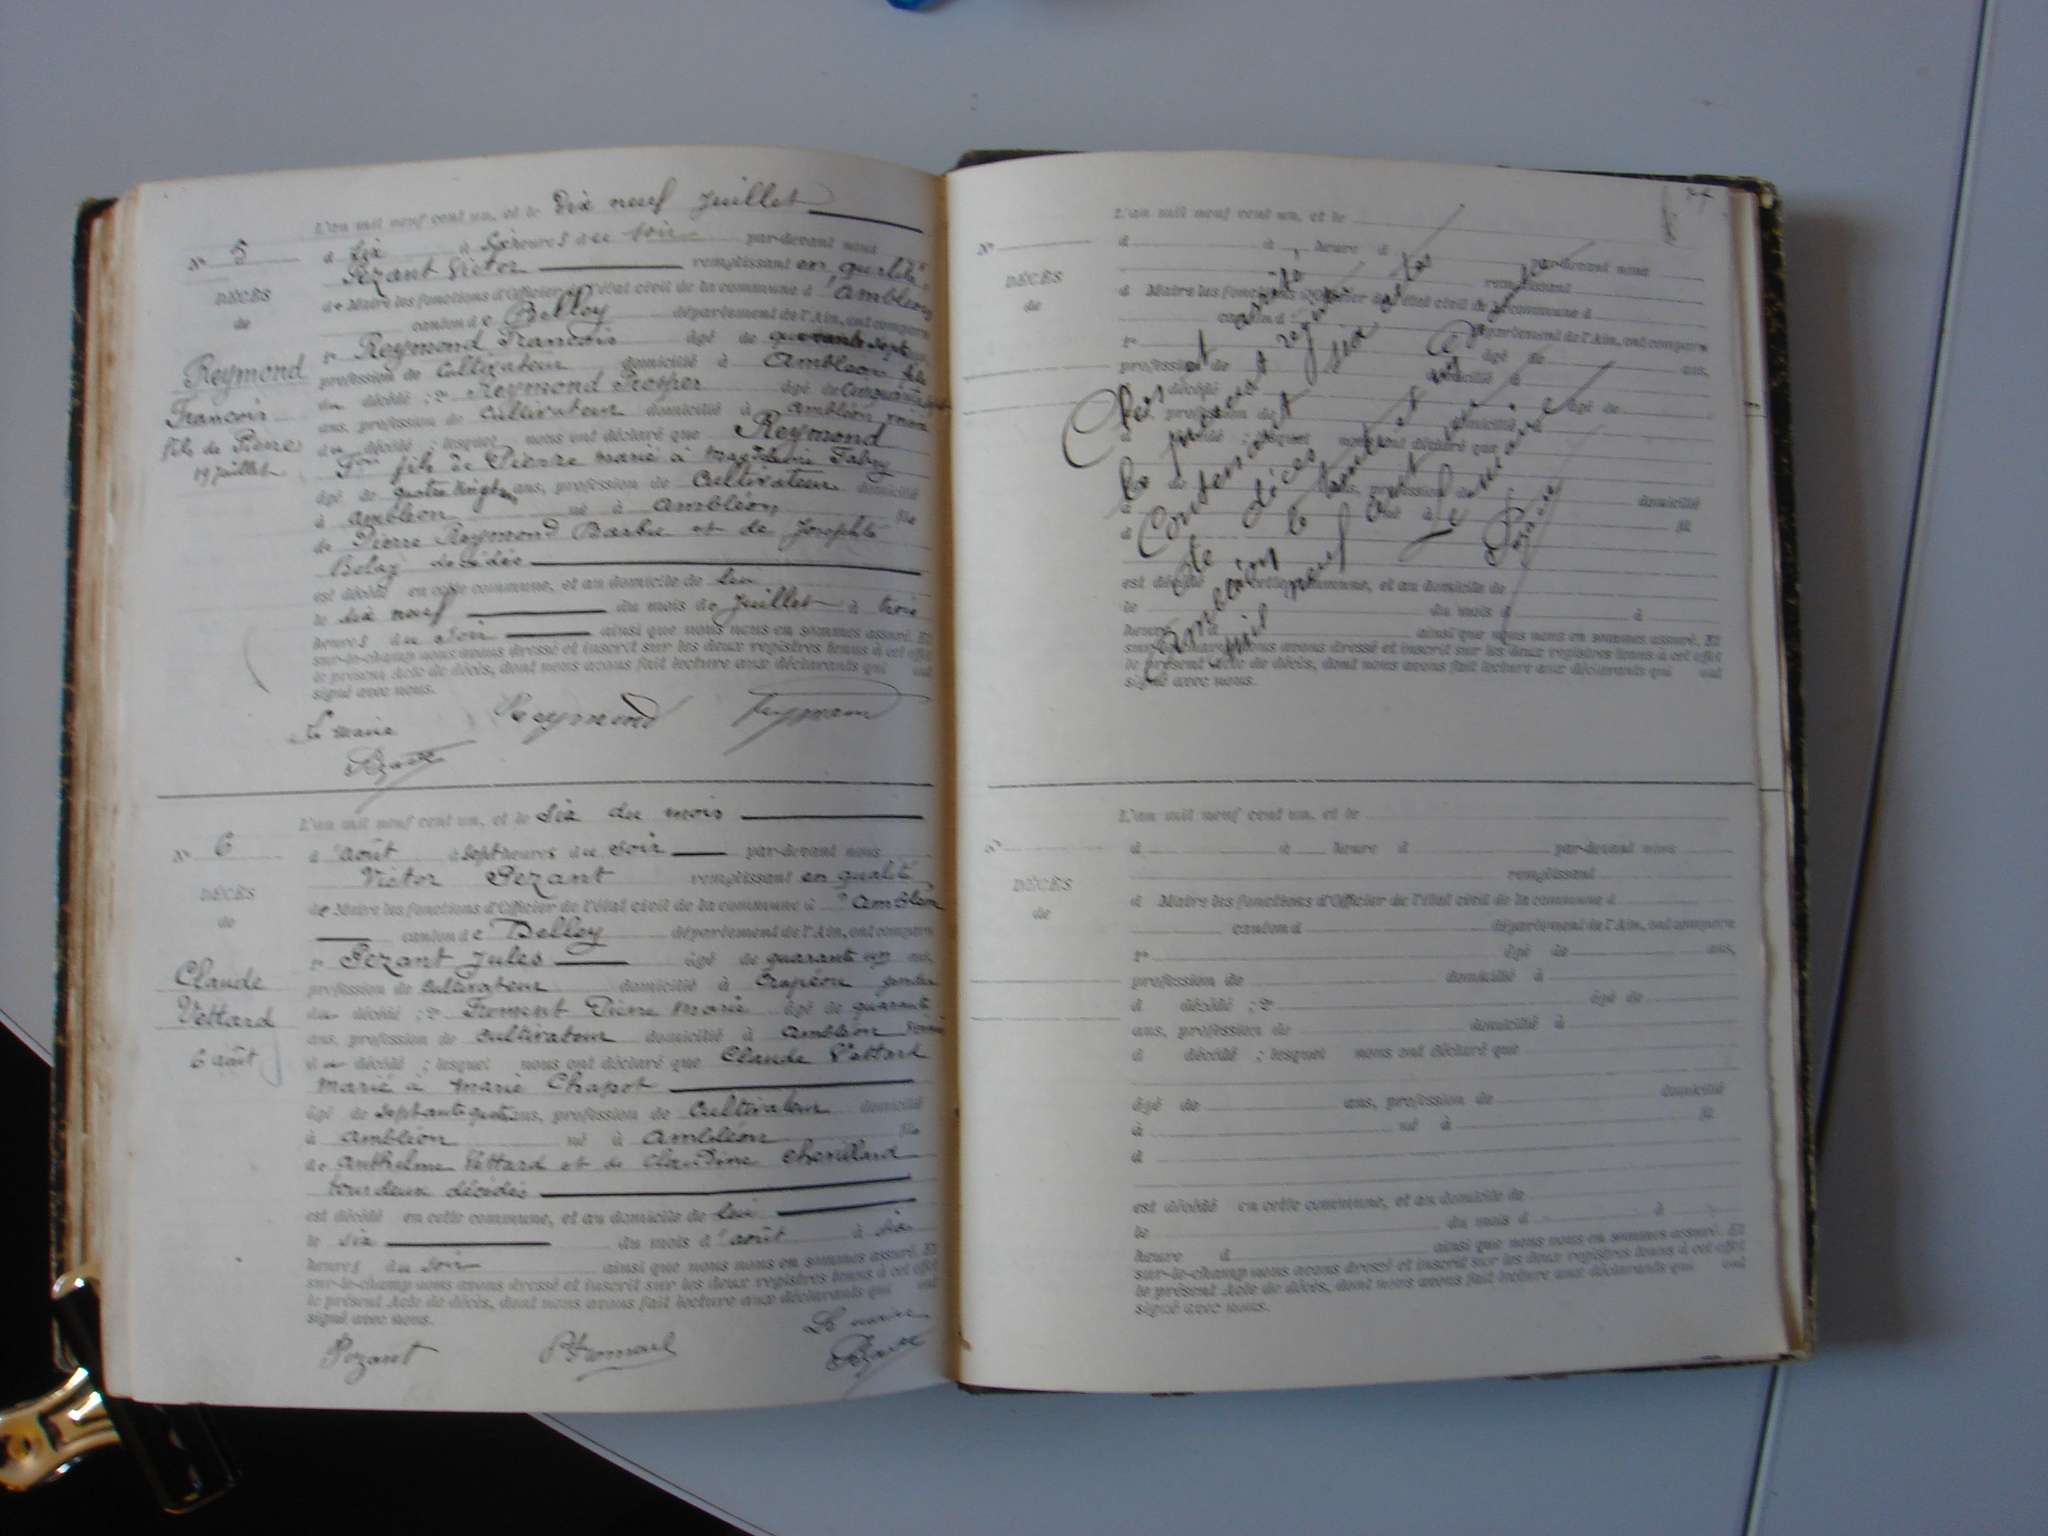 L'an mil neuf cent un, et le dix neuf Juillet
N° 5
à six heures du soir par-devant nous
Pezant Victor remplissant en qualité
de Maire les fonctions d'Officier de l'état civil de la commune d'Ambléon
DÉCÈS
de
canton de Belley département de l'Ain, ont comparu
1° Reymond François âgé de quarante sept
Reymond
François
fils de Pierre
19 Juillet
profession de Cultivateur domicilié à Ambléon fils
du décédé ; 2° Reymond Prosper âgé de
ans, profession de Cultivateur domicilié à Ambléon voisin
du décédé ; lesquel nous ont déclaré que Reymond
fois fils de Pierre marié à Magdeleine Fabry
âgé de quatre vingt ans, profession de Cultivateur domicilié
à Ambléon né à Ambléon fils
de Pierre Reymond Barbu et de Josephte
Belay décédés
est décédé en cette commune, et au domicile de lui
le dix neuf du mois de Juillet à trois
heures du soir ainsi que nous nous en sommes assuré. Et
sur-le-champ nous avons dressé et inscrit sur les deux registres tenus à cet effet
le présent Acte de décès, dont nous avons fait lecture aux déclarants qui ont
signé avec nous.
Le maire
Reymond
Reymond
Pezant
L'an mil neuf cent un, et le six du mois
N° 6
d'août à sept heures du soir par-devant nous
Victor Pezant remplissant en qualité
de Maire les fonctions d'Officier de l'état civil de la commune d'Ambléon
DÉCÈS
de
canton de Belley département de l'Ain, ont comparu
1° Pezant Jules âgé de quarante un ans,
Claude
Vettard
6 août
profession de Cultivateur domicilié à Crapéou gendre
du décédé ; 2° Froment Pierre Marie âgé de quarante
ans, profession de Cultivateur domicilié à Ambléon voisin
du décédé ; lesquel nous ont déclaré que Claude Vettard
marié à Marie Chapot
âgé de septante quatre ans, profession de Cultivateur domicilié
à Ambléon né à Ambléon fils
de Anthelme Vettard et de Claudine Chenillard
tous deux décédés
est décédé en cette commune, et au domicile de lui
le six du mois d'août à six
heures du soir ainsi que nous nous en sommes assuré. Et
sur-le-champ nous avons dressé et inscrit sur les deux registres tenus à cet effet
le présent Acte de décès, dont nous avons fait lecture aux déclarants qui ont
signé avec nous.
Pezant
P Froment
Le maire
Pezant
L'an mil neuf cent un, et le
N°
d à heure d par-devant nous
remplissant
d Maire les fonctions d'Officier de l'état civil de la commune d
DÉCÈS
de
canton d département de l'Ain, ont comparu
1° âgé de ans,
profession de domicilié à
d décédé ; 2° âgé de
ans, profession de domicilié à
d décédé ; lesquel nous ont déclaré que
âgé de ans, profession de domicilié
à né à fil
d
est décédé en cette commune, et au domicile de
le du mois d à
heure d ainsi que nous nous en sommes assuré. Et
sur-le-champ nous avons dressé et inscrit sur les deux registres tenus à cet effet
le présent Acte de décès, dont nous avons fait lecture aux déclarants qui ont
signé avec nous.
Clos et arrêté
le présent registre
Contenant six actes
de décès
Ambléon le trente et un Décembre
mil neuf cent un
Le maire
Pezant
L'an mil neuf cent un, et le
N°
d à heure d par-devant nous
remplissant
d Maire les fonctions d'Officier de l'état civil de la commune à
DÉCÈS
de
canton d département de l'Ain, ont comparu
1° âgé de ans,
profession de domicilié à
d décédé ; 2° âgé de
ans, profession de domicilié à
d décédé ; lesquel nous ont déclaré que
âgé de ans, profession de domicilié
à né à fil
d
est décédé en cette commune, et au domicile de
le du mois d à
heure d ainsi que nous nous en sommes assuré. Et
sur-le-champ nous avons dressé et inscrit sur les deux registres tenus à cet effet
le présent Acte de décès, dont nous avons fait lecture aux déclarants qui ont
signé avec nous.